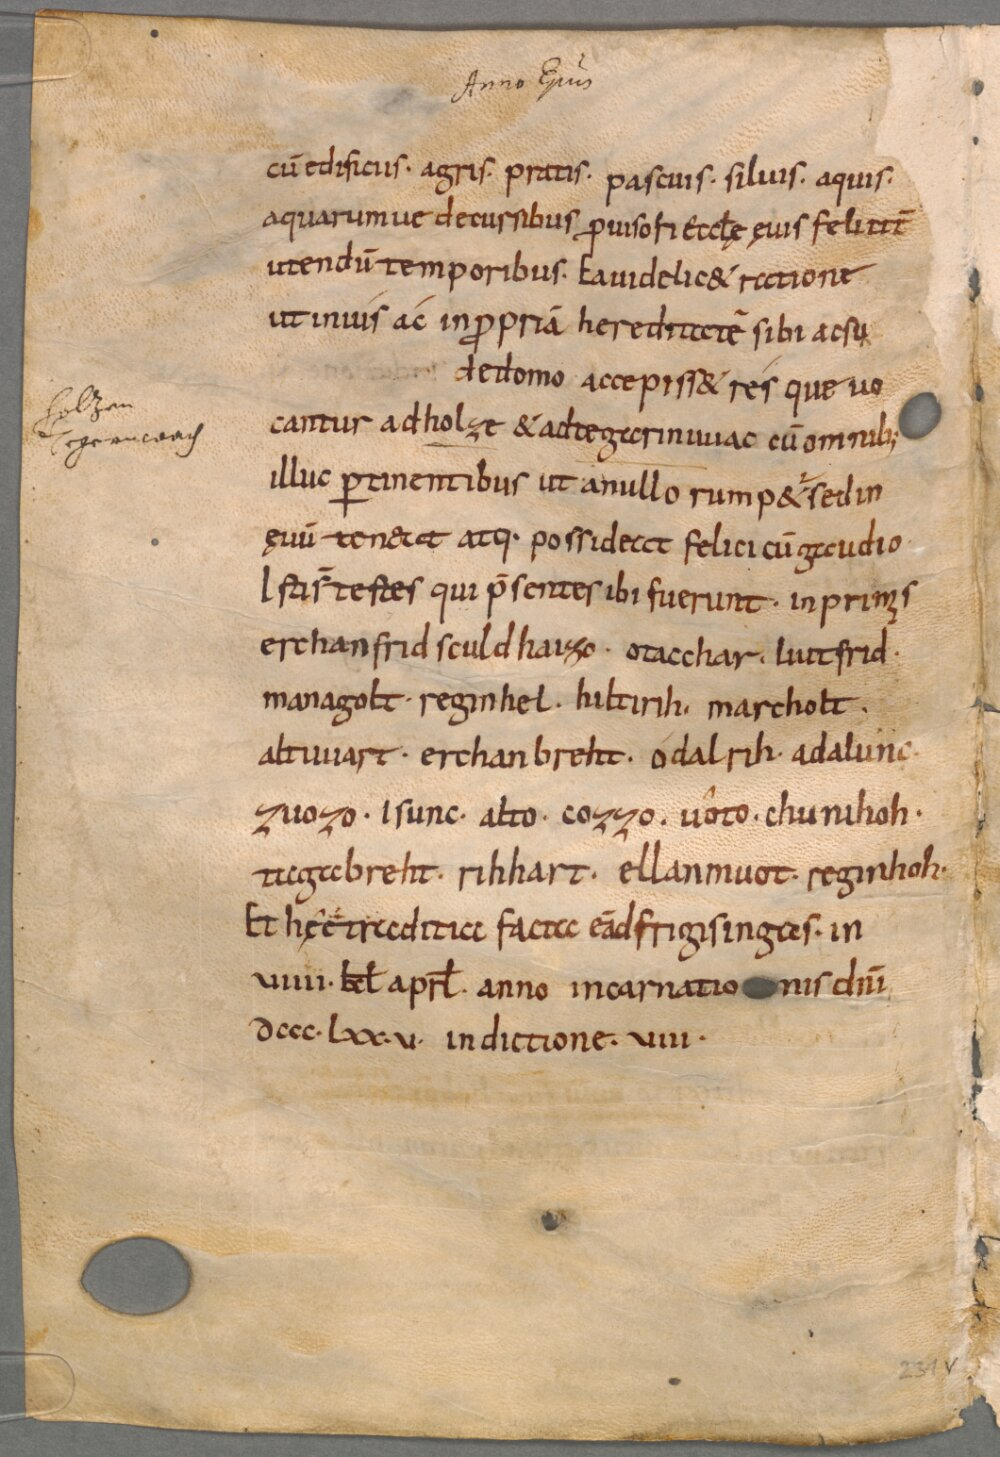 Anno Ejus
cū edificiis · agris · pratis · pascuis · siluis · aquis ·
aquarumue decursibus ꝓuisori ęccłę ęuis feliciť
utendū temporibus · Ea uidelic& ratione
ut in iuis ac in ꝓpriā hereditatē sibi ac suę
de domo accepiss& res que uo
holzen
cantur ad holze & ad tegarinuuac cū omnib;
Tegernwach
illuc ꝑtinentibus ut a nullo rump& sed in
ęuū teneat atq· possideat felici cū gaudio ·
Isti s̄ testes qui p̄sentes ibi fuerunt · in primis
erchanfrid sculdhaizo · otacchar · liutfrid ·
managolt · reginhel · hiltirih · marcholt ·
altuuart · erchanbreht · odalrih · adalunc ·
zuozo · Isunc · alto · cozzo · uôto · chunihoh ·
tagabreht · rihhart · ellanmuot · reginhoh ·
Et hęc traditio facta ē ad frigisingas · in
uiiii · kl apr̄l · anno incarnationis dn̄i
dccc · lxx · u · indictione · uiii ·
231v